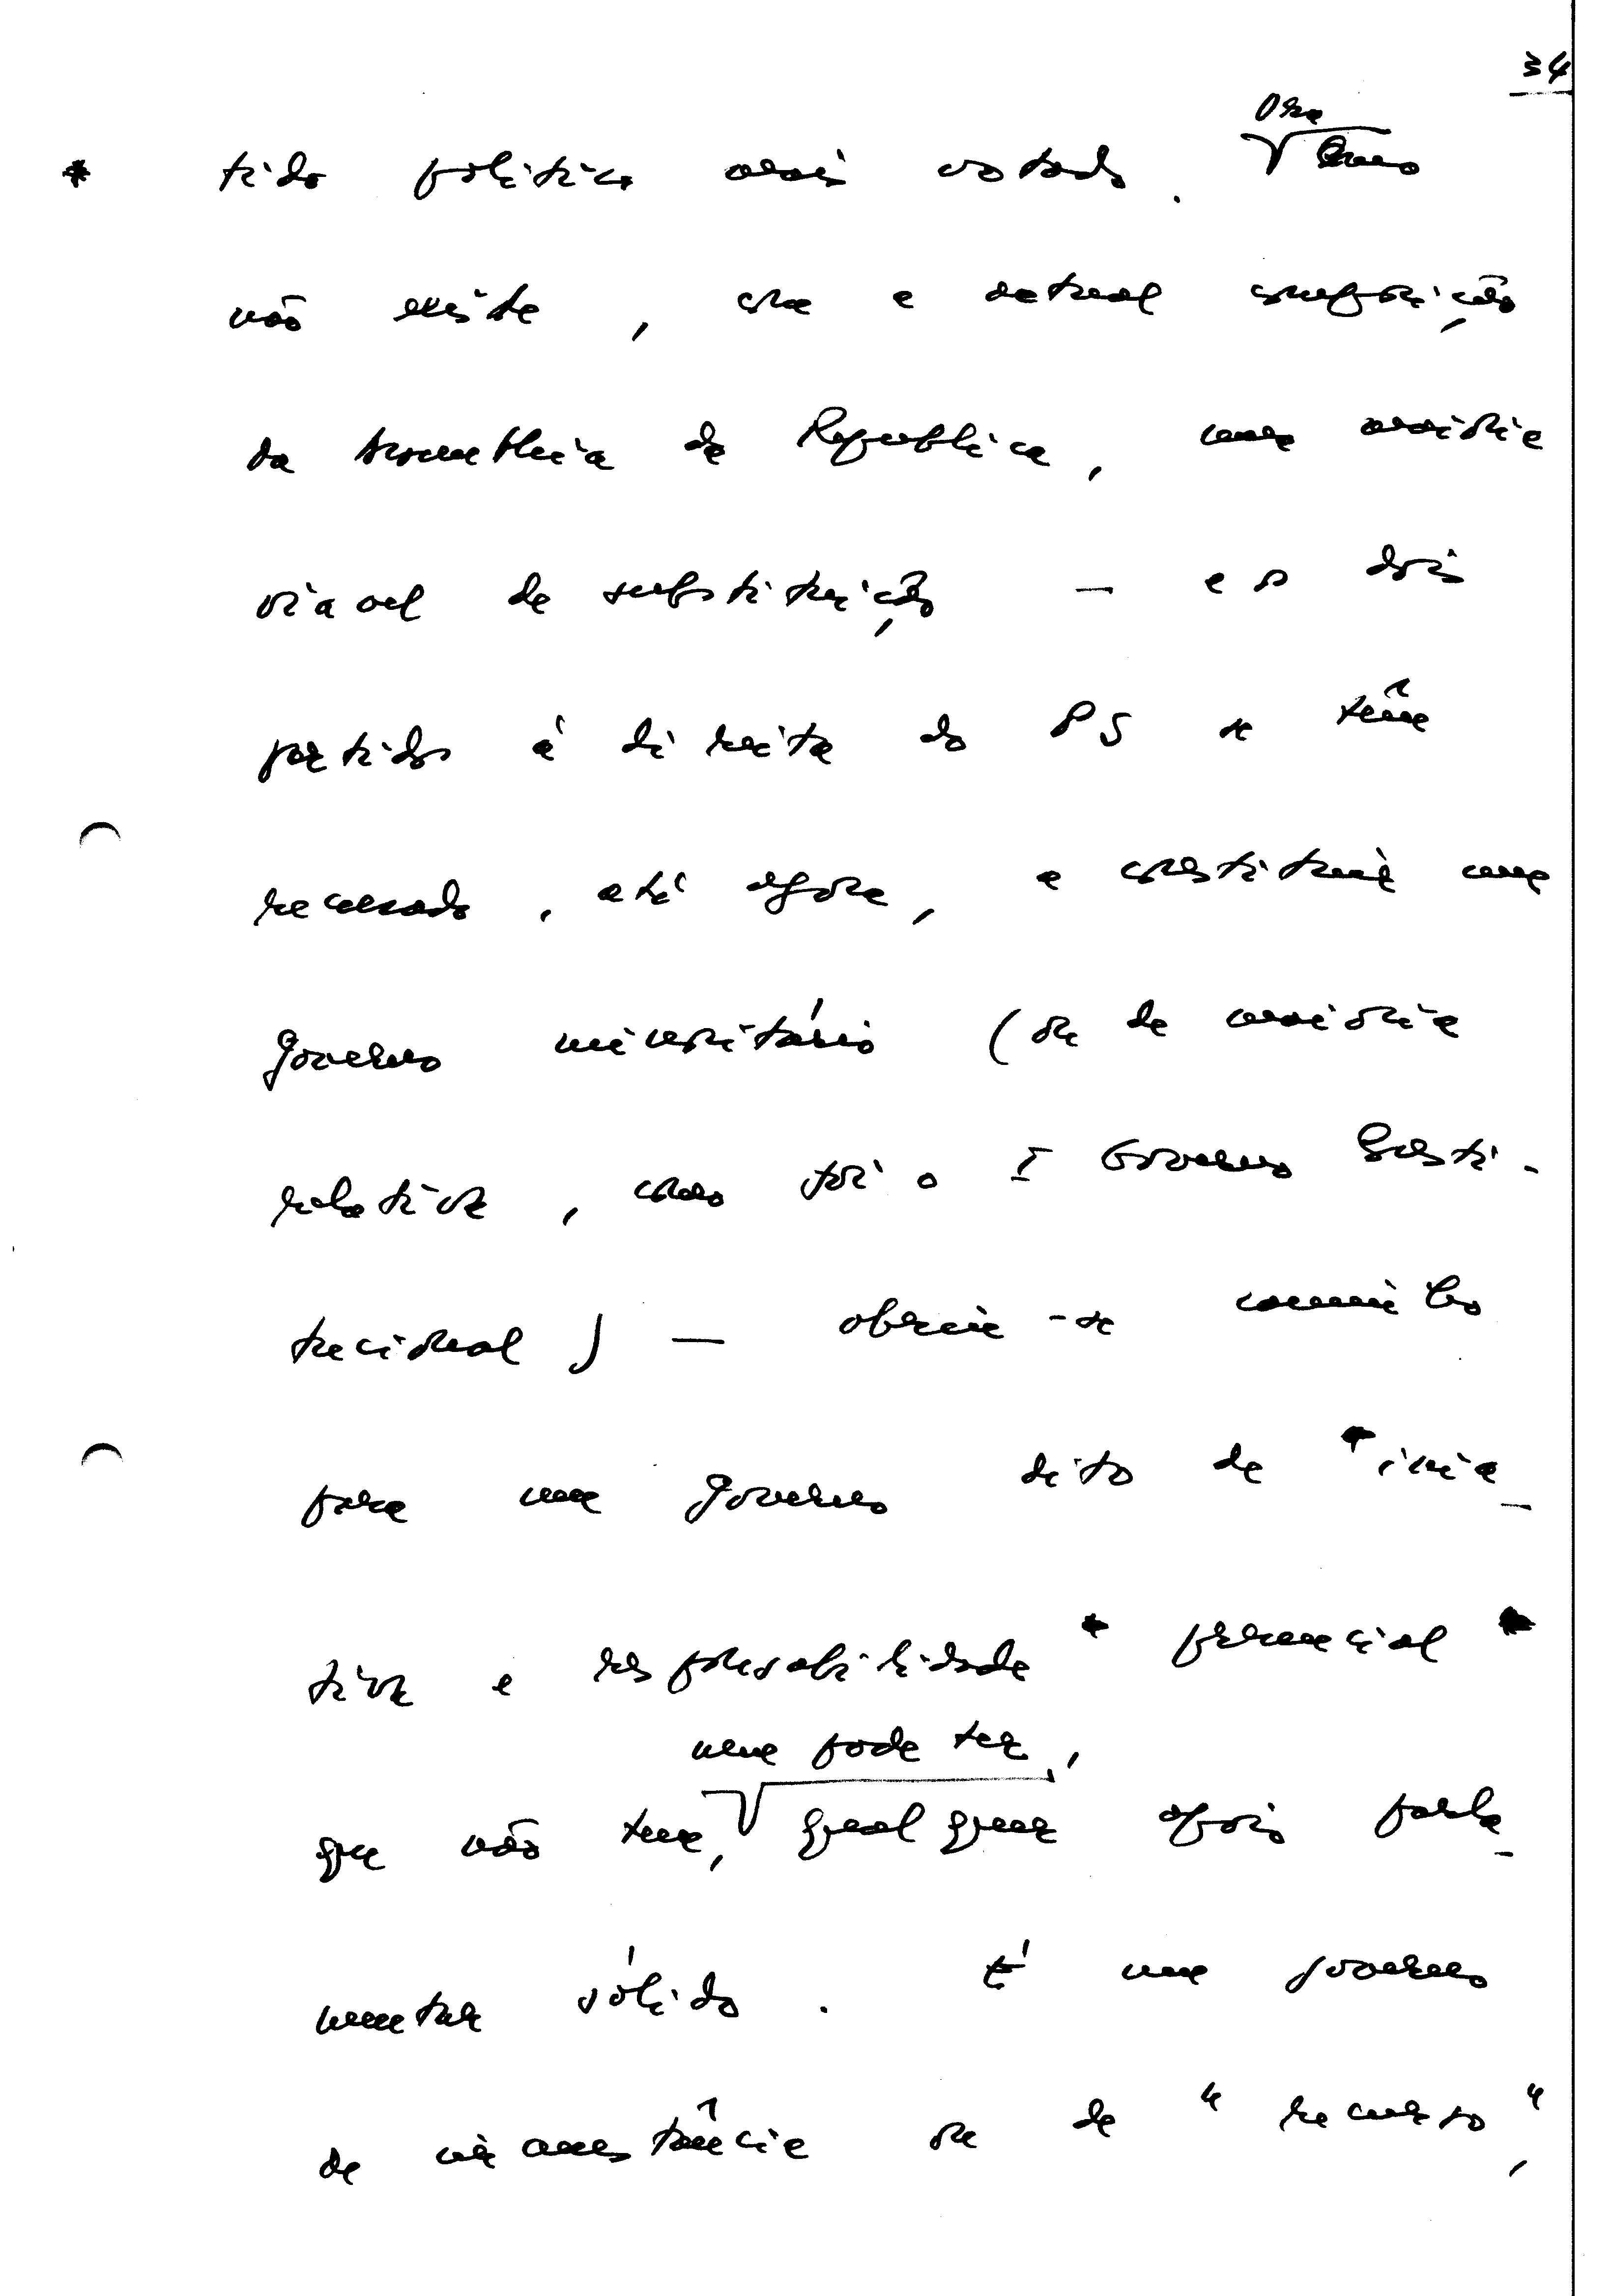 34
Ora
* tido político mais votado. Como
não existe, com a actual composição
da Assembleia da República, uma maioria
viavel de substituição — e os dois
partidos à direita do PS se têm
recusado, até agora, a constituir um
governo minoritário (ou de maioria
relativa, como foi o I Governo Consti-
tucional) — abriu-se caminho
para um governo dito de "inicia-
tiva e responsabilidade" presidencial"
nem pode ter,
que não tem, qualquer apoio parla-
mentar sólido. É um governo
de circunstância ou de "recurso",